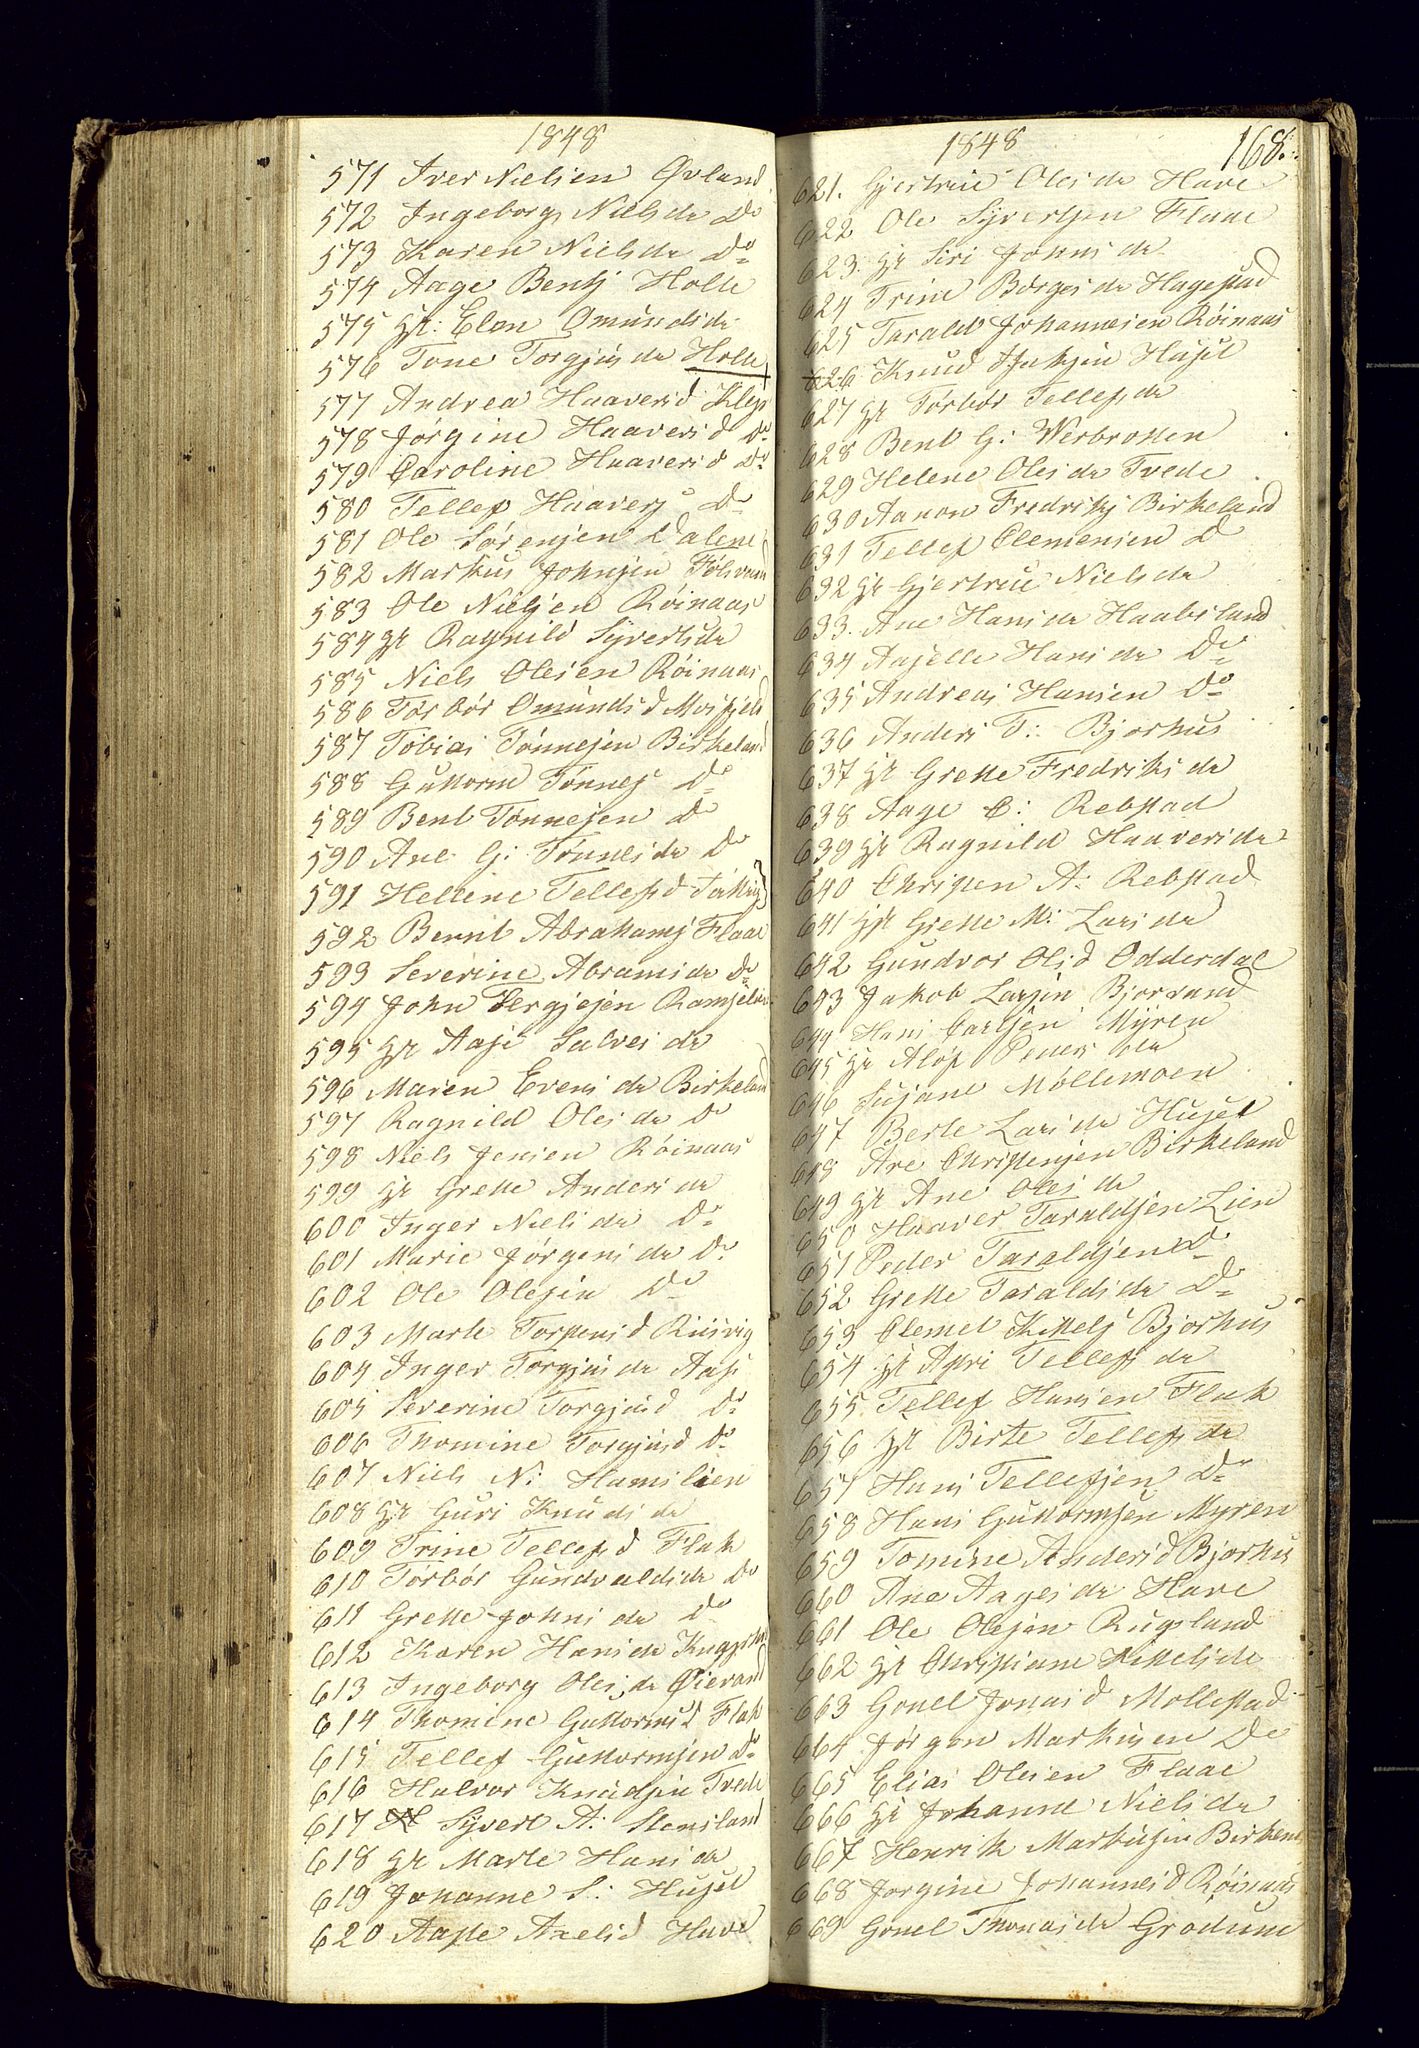 1848
571 Iver Nielsen Øvland
572 Ingeborg Nielsda Do
573 Karen Nielsda Do
574 Aage Bentsj Holte
575 Hr: Elen Omundsda
576 Tone Torgjusda Holte
577 Andrea Haaversd Klep
578 Jørgine Haaversd Do
579 Caroline Haaversd Do
580 Tellef Haaversj Do
581 Ole Sørensen Dalene
582 Markus Johnsen
583 Ole Nielsen Røinaas
584 Hr Ragnild Syvertsda
585 Niels Olesen Røinaas
586 Torbør Omundsd Mosfjeld
587 Tobias Tønnesen Birkeland
588 Guttorm Tønnes Do
589 Bent Tønnesen Do
590 Ane G: Tønnesda Do
591 Helline Tellefsd
592 Bernt Abrahamsj Flaae
593 Severine Abramsda Do
594 John Tergjesen
595 Hr Aase Salvesda
596 Maren Evensda Birkeland
597 Ragnild Olesda Do
598 Niels Jensen Røinaas
599 Hr Grette Andersda
600 Inger Nielsda Do
601 Marie Jørgensda Do
602 Ole Olesen Do
603 Marte Torstensd Riisvig
604 Inger Torgjusda Aas
605 Severine Torgjusd Do
606 Thomine Torgjusd Do
607 Niels N: Hamslien
608 Hr Guri Knudsda
609 Trine Tellefsd Flak
610 Torbør Gundvaldsda Do
611 Grette Johnsda Do
612 Karen Hansda
613 Ingeborg Olesda Øievand
614 Thomine Guttormsd Flak
615 Tellef Guttormsen Do
616 Halvor Knudsen Tvede
617 Syvert A: Stensland
618 Hr Marte Hansda
619 Johanne S: Huset
620 Aaste Axelsd Have
1848 168.
621. Gjertrue Olesda Have
622 Ole Syvertsen Flaae
623. Hr Siri Johnsda
624 Trine Børgesda Hagestad
625 Tarald Johannesen Røinaas
626 Knud Huset
627 Hr Torbør Tellefsda
628 Bent G: Werbrotten
629 Helene Olesda Tvede
630 Aanon Fredriksj Birkeland
631 Tellef Clemensen D
632 Hr Gjertrue Nielsda
633. Ane Hansda Haabesland
634 Aaselle Hansda Do
635 Andreas Hansen Do
636 Anders T: Bjorhus
637 Hr Grette Fredriksda
638 Aage C: Rebstad
639 Hr Ragnild Haaversda
640 Christen A: Rebstad
641 Hr Grette M: Larsda
642 Gundvor Olsd Odderdal
643 Jakob Larsen Bjorvand
644 Hans Carlsen Myren
645 Hr Aløf Pedersda
646 Susane Møllemoen
647 Berte Larsda Huset
648 Are Christensen Birkeland
649 Hr Ane Olesda
650 Haaver Taraldsen Lien
651 Peder Taraldsen Do
652 Grette Taraldsda Do
653 Clemet Kittelsj Bjorhus
654 Hr Astri Tellefsda
655 Tellef Hansen Flak
656 Hr Birte Tellefsda
657 Hans Tellefsen Do
658 Hans Guttormsen Myren
659 Tomine Andersd Bjorhus
660 Ane Aagesda Have
661 Ole Olesen Rugsland
662 Hr Christiane Kittelsda
663 Gonel Jonasd Mollestad
664 Jørgen Markusen Do
665 Elias Olesen Flaae
666 Hr Johanne Nielsda
667 Henrik Markusen
668 Jorgine Johannesd Røinaas
669 Gonel Thomasda Grødum